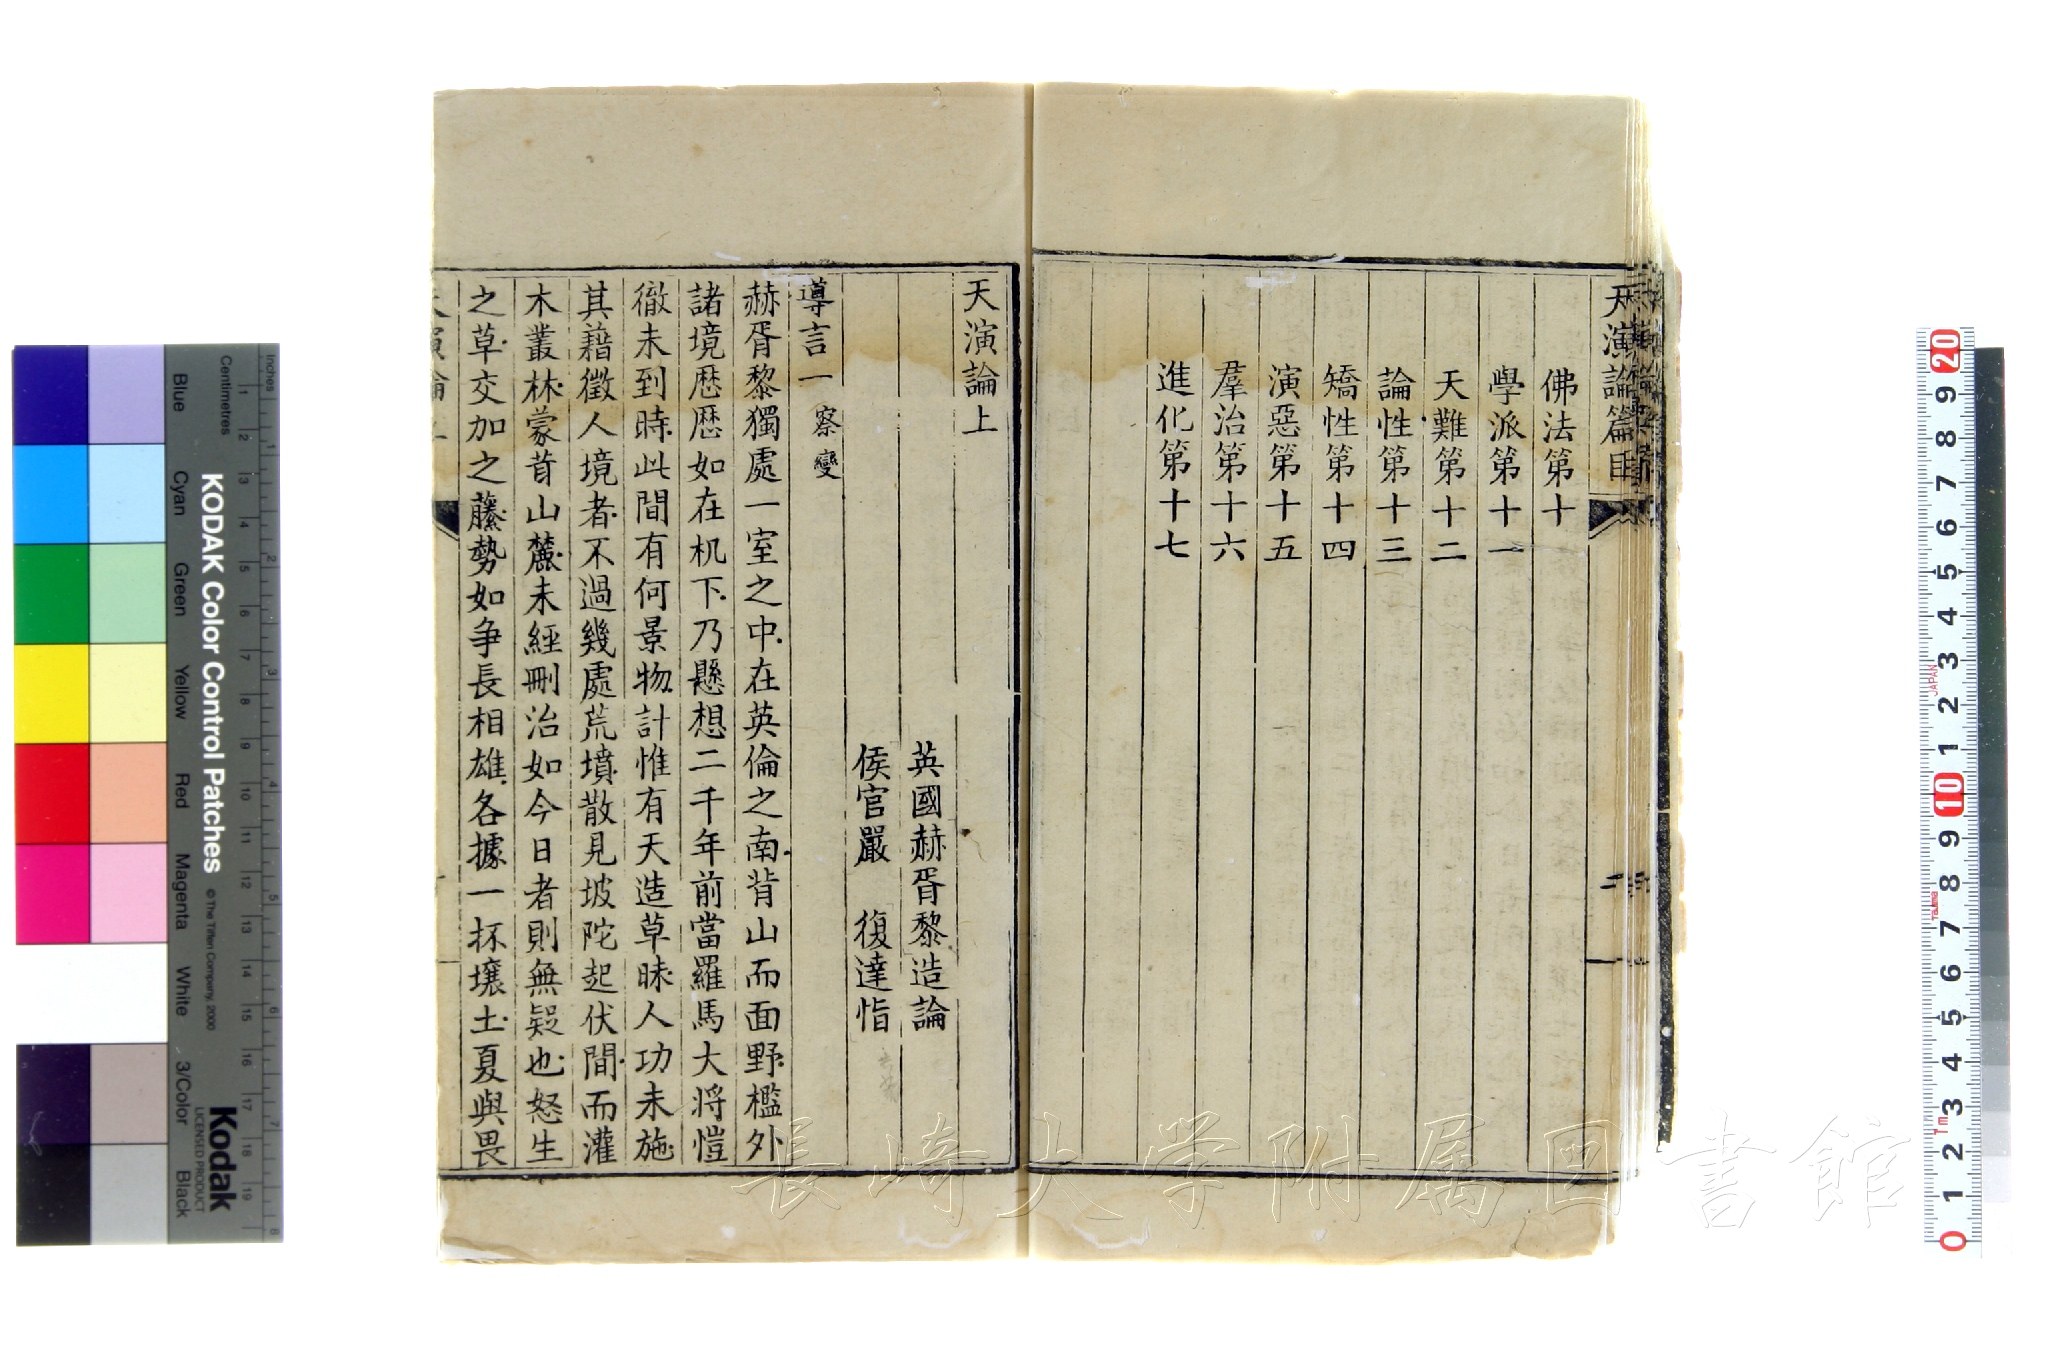 天演論篇目
佛法第十
學派第十一
天難第十二
論性第十三
矯性第十四
演惡第十五
羣治第十六
進化第十七
二
天演論上
英國赫胥黎造論
侯官嚴 復達恉
導言一 察變
赫胥黎獨處一室之中.在英倫之南.背山而面野.檻外
諸境.歴歴如在机下.乃懸想二千年前.當羅馬大將愷
徹未到時.此間有何景物.計惟有天造草昧.人功未施.
其藉徵人境者.不過幾處荒墳.散見坡陀起伏間.而灌
木叢林.蒙茸山麓.未經刪治如今日者.則無疑也.怒生
之草.交加之藤.勢如争長相雄.各據一抔壤土.夏與畏
KODAK Color Control Patches
© The Tiffen Company, 2000
Kodak
LICENSED PRODUCT
Inches
Centimetres
Blue
Cyan
Green
Yellow
Red
Magenta
White
3/Color
Black
1 2 3 4 5 6 7 8
1 2 3 4 5 6 7 8 9 10 11 12 13 14 15 16 17 18 19
20 9 8 7 6 5 4 3 2 1 10 9 8 7 6 5 4 3 2 1 0
JAPAN
Tajima
Tm
長崎大学附属図書館